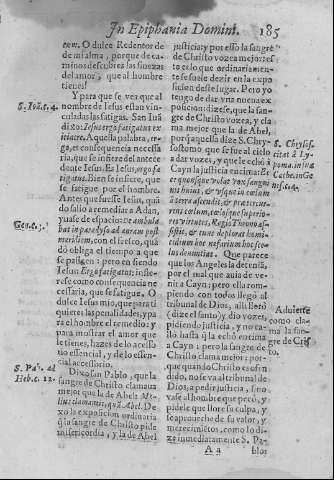 In Epiphania Domini. 185
cem. O dulce Redentor de
mi alma, porque de ca-
minos descubres las finezas
del amor, que al hombre
tienes!
Y para que se ver que al
nombre de Iesus estan vin-
culadas las fatigas. San Iuã
dixo: Iesus ergo fatigatus ex
itiacre. Aquella palabra, er-
go, est consequencia necessa
ria, que se infiere del antece
dente Iesus. Es Iesus, ergo fa-
tigatus. Bien se infiere, que
se fatigue por el hombre.
Antes que fuesse Iesus, quã
do salio a remediar a Adan,
y uase de espacio: Deambula
bat in paradyso ad auram post
meridiem, con el fresco, quã
do obliga el tiempo a que
se passeen: pero en siendo
Iesus Ergo fatigatus: infie-
rese como consequencia ne
cessaria, que se fatigue. O
dulce Iesus mio, que para ti
quieres las penalidades, y pa
ra el hombre el remedio; y
para mostrar el amor que
le tienes, hazes de lo accesso
rio essencial, y de lo essen-
cial accessorio.
Dixo san Pablo, que la
sangre de Christo clamaua
mejor que la de Abel: Me-
lius clamantis, quã Abel. De
xo la exposicion ordinaria
q̃ la sangre de Christo pide
misericordia, y la de Abel
S. Iuã. c. 4.
Gen. c. 3.
S. Pa. ad
Heb. c. 12.
justicia: y por esso la sangre
de Christo vozea mejor: es
to es lo que ordinariamen-
te se suele dezir en la expo
sicion deste lugar. Pero yo
tengo de dar vna nueua ex
posicion: dizese, que la san-
gre de Christo vozea, y cla
ma mejor que la de Abel,
porque aquella dize S. Chry
sostomo que se fue al cielo
a dar vozes, y que le echò a
Cayn la justicia encima: Et
ce quos que volat vox sangui
nis huius, & vsque in cœlum
à terra ascendit, & præteritur
rens cœlum, cœlique superio-
res virtutes, Regio Throno as-
sistit, & tuus deplorat homi
cidium hoc nefarium hoc fœ-
dus denuntiat. Que parece
que los Angeles la detenian,
por el mal que auia de ve-
nir a Cayn: pero ella rom-
piendo con todos llegò al
tribunal de Dios, alli llorò
(dize el santo) y dio vozes,
pidiendo justicia, y no ca-
llò hasta q̃ la echò encima
a Cayn: pero la sangre de
Christo clama mejor: por-
que quando Christo es ofen
dido, no se va al tribunal de
Dios, a pedir justicia, sino
vase al hombre que pecò, y
pidele que llore su culpa, y
se aproueche de su valor, y
merecimiẽtos, como lo di-
ze immediatamente S. Pa-
A a blos
S. Chrysos.
Cathe. in Ge
nes. c. 4.
Aduierte
como cla
ma la san-
gre de Cris
to.